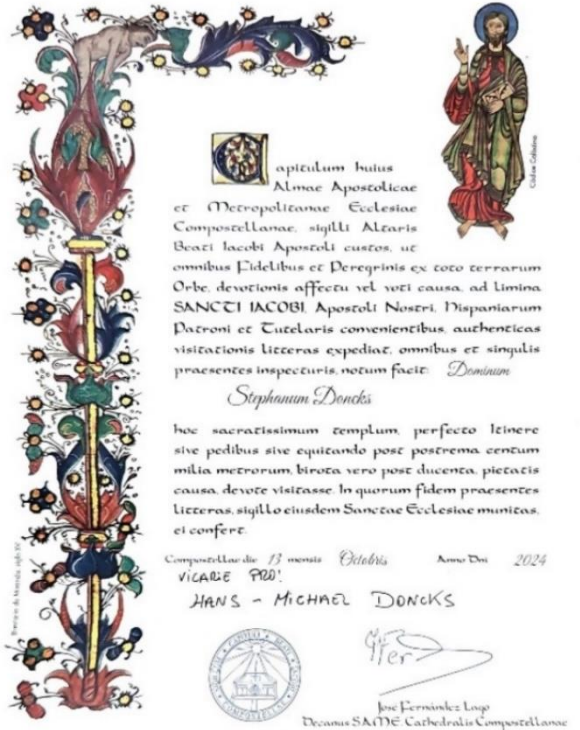 Capitulum huius
Almae Apostolicae
et Metropolitanae Ecclesiae
Compostellanae, sigilli Altaris
Beati Iacobi Apostoli custos, ut
omnibus Fidelibus et Peregrinis ex toto terrarum
Orbe, devotionis affectu vel voti causa, ad limina
SANCTI IACOBI, Apostoli Nostri, Hispaniarum
Patroni et Tutelaris convenientibus, authenticas
visitationis litteras expediat, omnibus et singulis
praesentes inspecturis, notum facit: Dominum
Stephanum Doncks
hoc sacratissimum templum, perfecto Itinere
sive pedibus sive equitando post postrema centum
milia metrorum, birota vero post ducenta, pietatis
causa, devote visitasse. In quorum fidem praesentes
litteras, sigillo eiusdem Sanctae Ecclesiae munitas,
ei confert.
Compostellae die 13 mensis Octobris Anno Dni 2024
VICARIE PRO:
HANS - MICHAEL DONCKS
José Fernández Lago
Decanus S.A.M.E. Cathedralis Compostellanae
Códice Calixtino